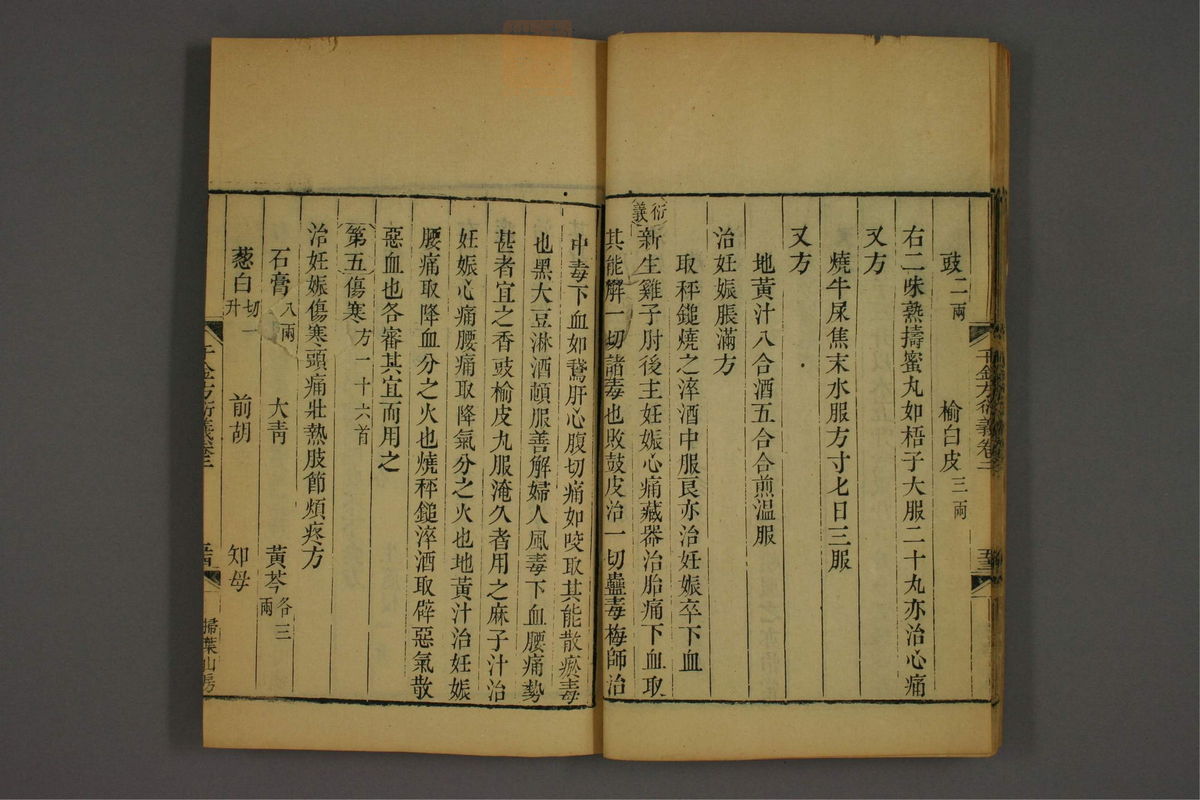 豉二兩　榆白皮三兩
右二味熟擣蜜丸如梧子大服二十丸亦治心痛
又方
燒牛屎焦末水服方寸匕日三服
又方
地黃汁八合酒五合合煎溫服
治妊娠脹滿方
取秤鎚燒之淬酒中服良亦治妊娠卒下血
衍義新生雞子肘後主妊娠心痛藏器治胎痛下血取
其能解一切諸毒也敗鼓皮治一切蠱毒梅師治
中毒下血如鵞肝心腹切痛如咬取其能散瘀毒
也黑大豆淋酒頓服善解婦人風毒下血腰痛勢
甚者宜之香豉榆皮丸服淹久者用之麻子汁治
妊娠心痛腰痛取降氣分之火也地黃汁治妊娠
腰痛取降血分之火也燒秤鎚淬酒取辟惡氣散
惡血也各審其宜而用之
第五傷寒方一十六首
治妊娠傷寒頭痛壯熱肢節煩疼方
石膏八兩　大青　黃芩各三兩
葱白切一升　前胡　知母
千金方衍義卷二
掃葉山房